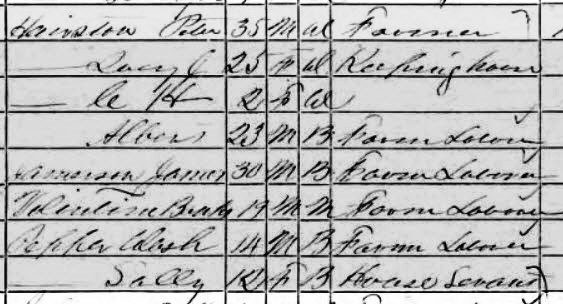 Hairston Peter 35 M W Farmer
— Lucy J 25 F W Keeping house
— C H 2 F W
Albert 23 M B Farm Laborer
Jamerson James 30 M B Farm Laborer
Valentine 19 M M Farm Laborer
Pepper Wash 14 M B Farm Laborer
— Sally 12 F B House Servant